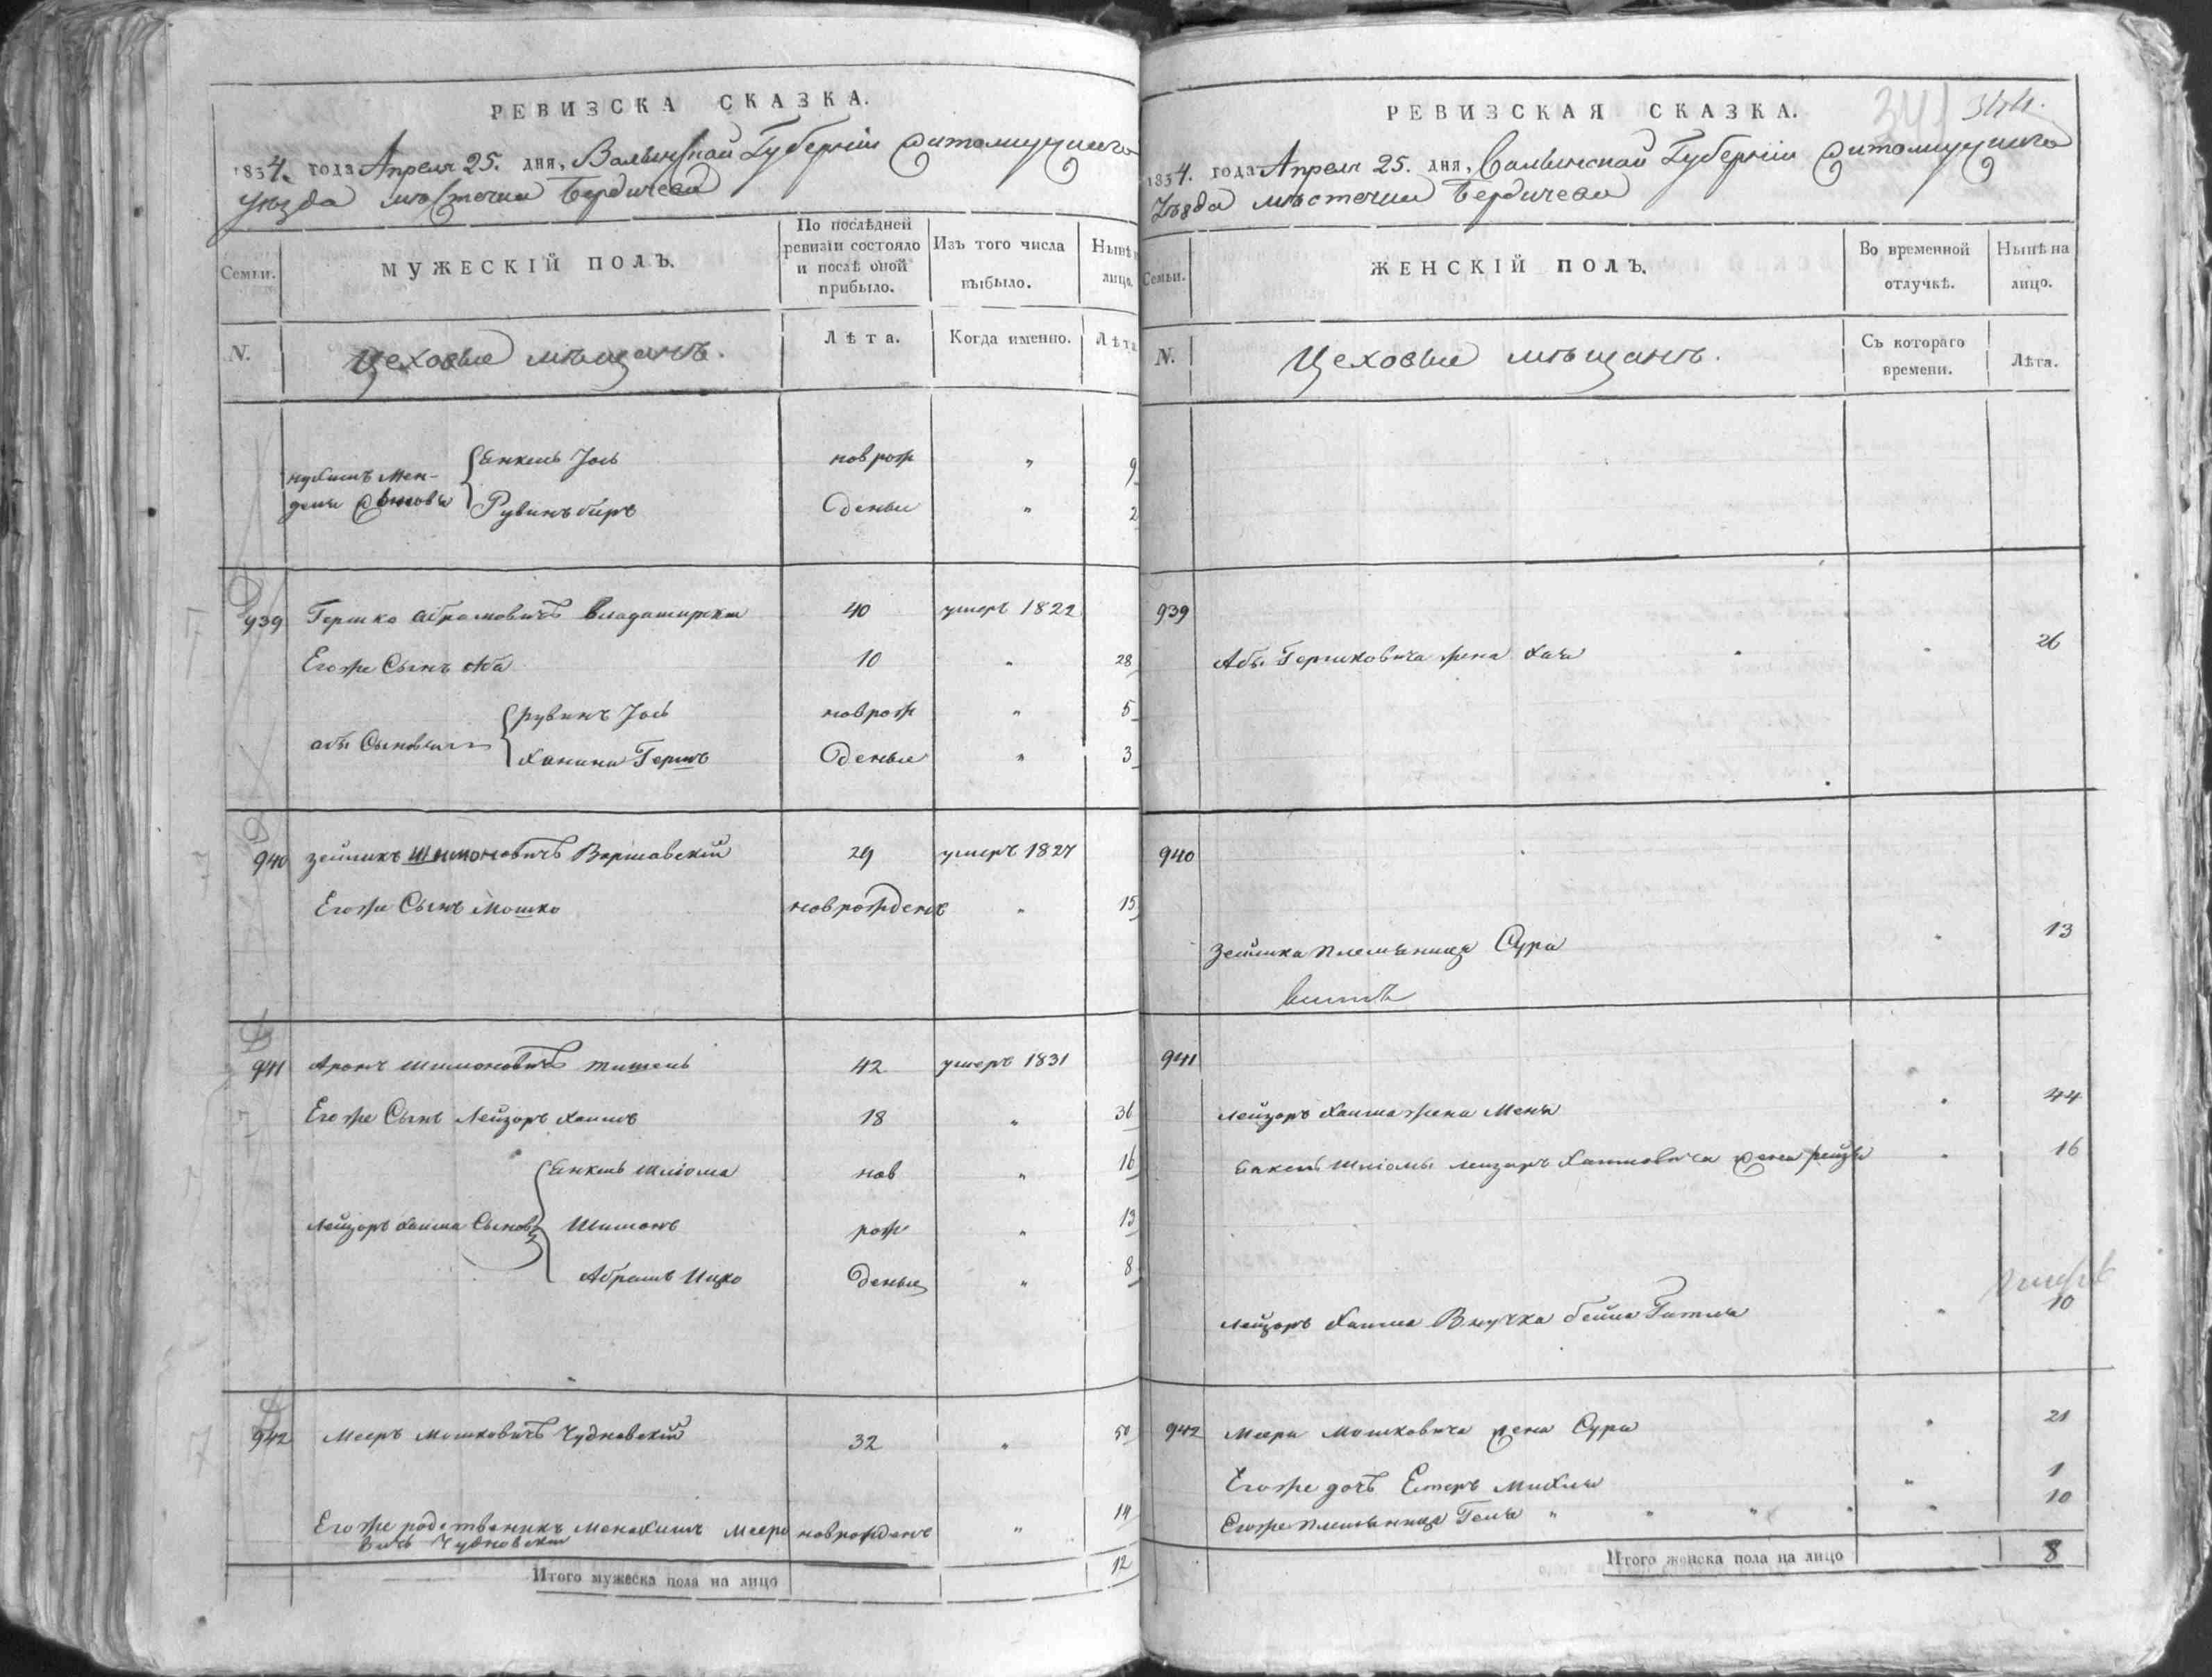 РЕВИЗСКА СКАЗКА.
1834. года Апреля 25. дня, Волынской Губернiи Житомирскаго
уѣзда мѣстечка Бердичева
Семьи.
МУЖЕСКIЙ ПОЛЪ.
По послѣдней ревизiи состояло и послѣ оной прибыло.
Изъ того числа выбыло.
Нынѣ лицо.
N.
Цеховые мѣщанъ.
Лѣта.
Когда именно.
Лѣта
Мен-
дели Сыновья
Енкель Iось новрож " 9
Рувинъ Беръ деные " 2
939 Гершко Абрамовичъ 40 умеръ 1822
Егоже Сынъ Аба 10 " 28
Абы Сыновья
Рувинъ Iось новрож " 5
Ханина Гершъ деные " 3
940 Зейликъ Шимоновичъ Варшавскiй 29 умеръ 1827
Егоже Сынъ Мошко новрожденъ " 15
941 Аронъ Шимоновичъ 42 умеръ 1831
Егоже Сынъ Лейзоръ Хаимъ 18 " 36
Лейзоръ Хаима Сыновья
Енкель Шлiома нов " 16
Шимонъ рож " 13
Абрамъ Ицко деные " 8
942 Мееръ Мошковичъ Чудновскiй 32 " 50
Егоже родственикъ Менахимъ Мееро новрожденъ " 14
вичъ Чудновскiй
Итого мужеска пола на лицо 12
РЕВИЗСКАЯ СКАЗКА.
341 344.
1834. года Апреля 25. дня, Волынской Губернiи Житомирскаго
Уѣзда мѣстечка Бердичева
Семьи.
ЖЕНСКIЙ ПОЛЪ.
Во временной отлучкѣ.
Нынѣ на лицо.
N.
Цеховые мѣщанъ.
Съ котораго времени.
Лѣта.
939
Абы Гершковича жена Хая " " 26
940
Зейлика племяница Сура " 13
941
Лейзоръ Хаима жена Меня " 44
Енкель Шлiомы Лейзоръ Хаимовича жена Рейзя " 16
Лейзоръ Хаима Внучка Бейла Гитля " 10
942 Меера Мошковича жена Сура " 21
Егоже дочь Естеръ Михля " 1
Егоже племяница Геня " " " " " 10
Итого женска пола на лицо 8